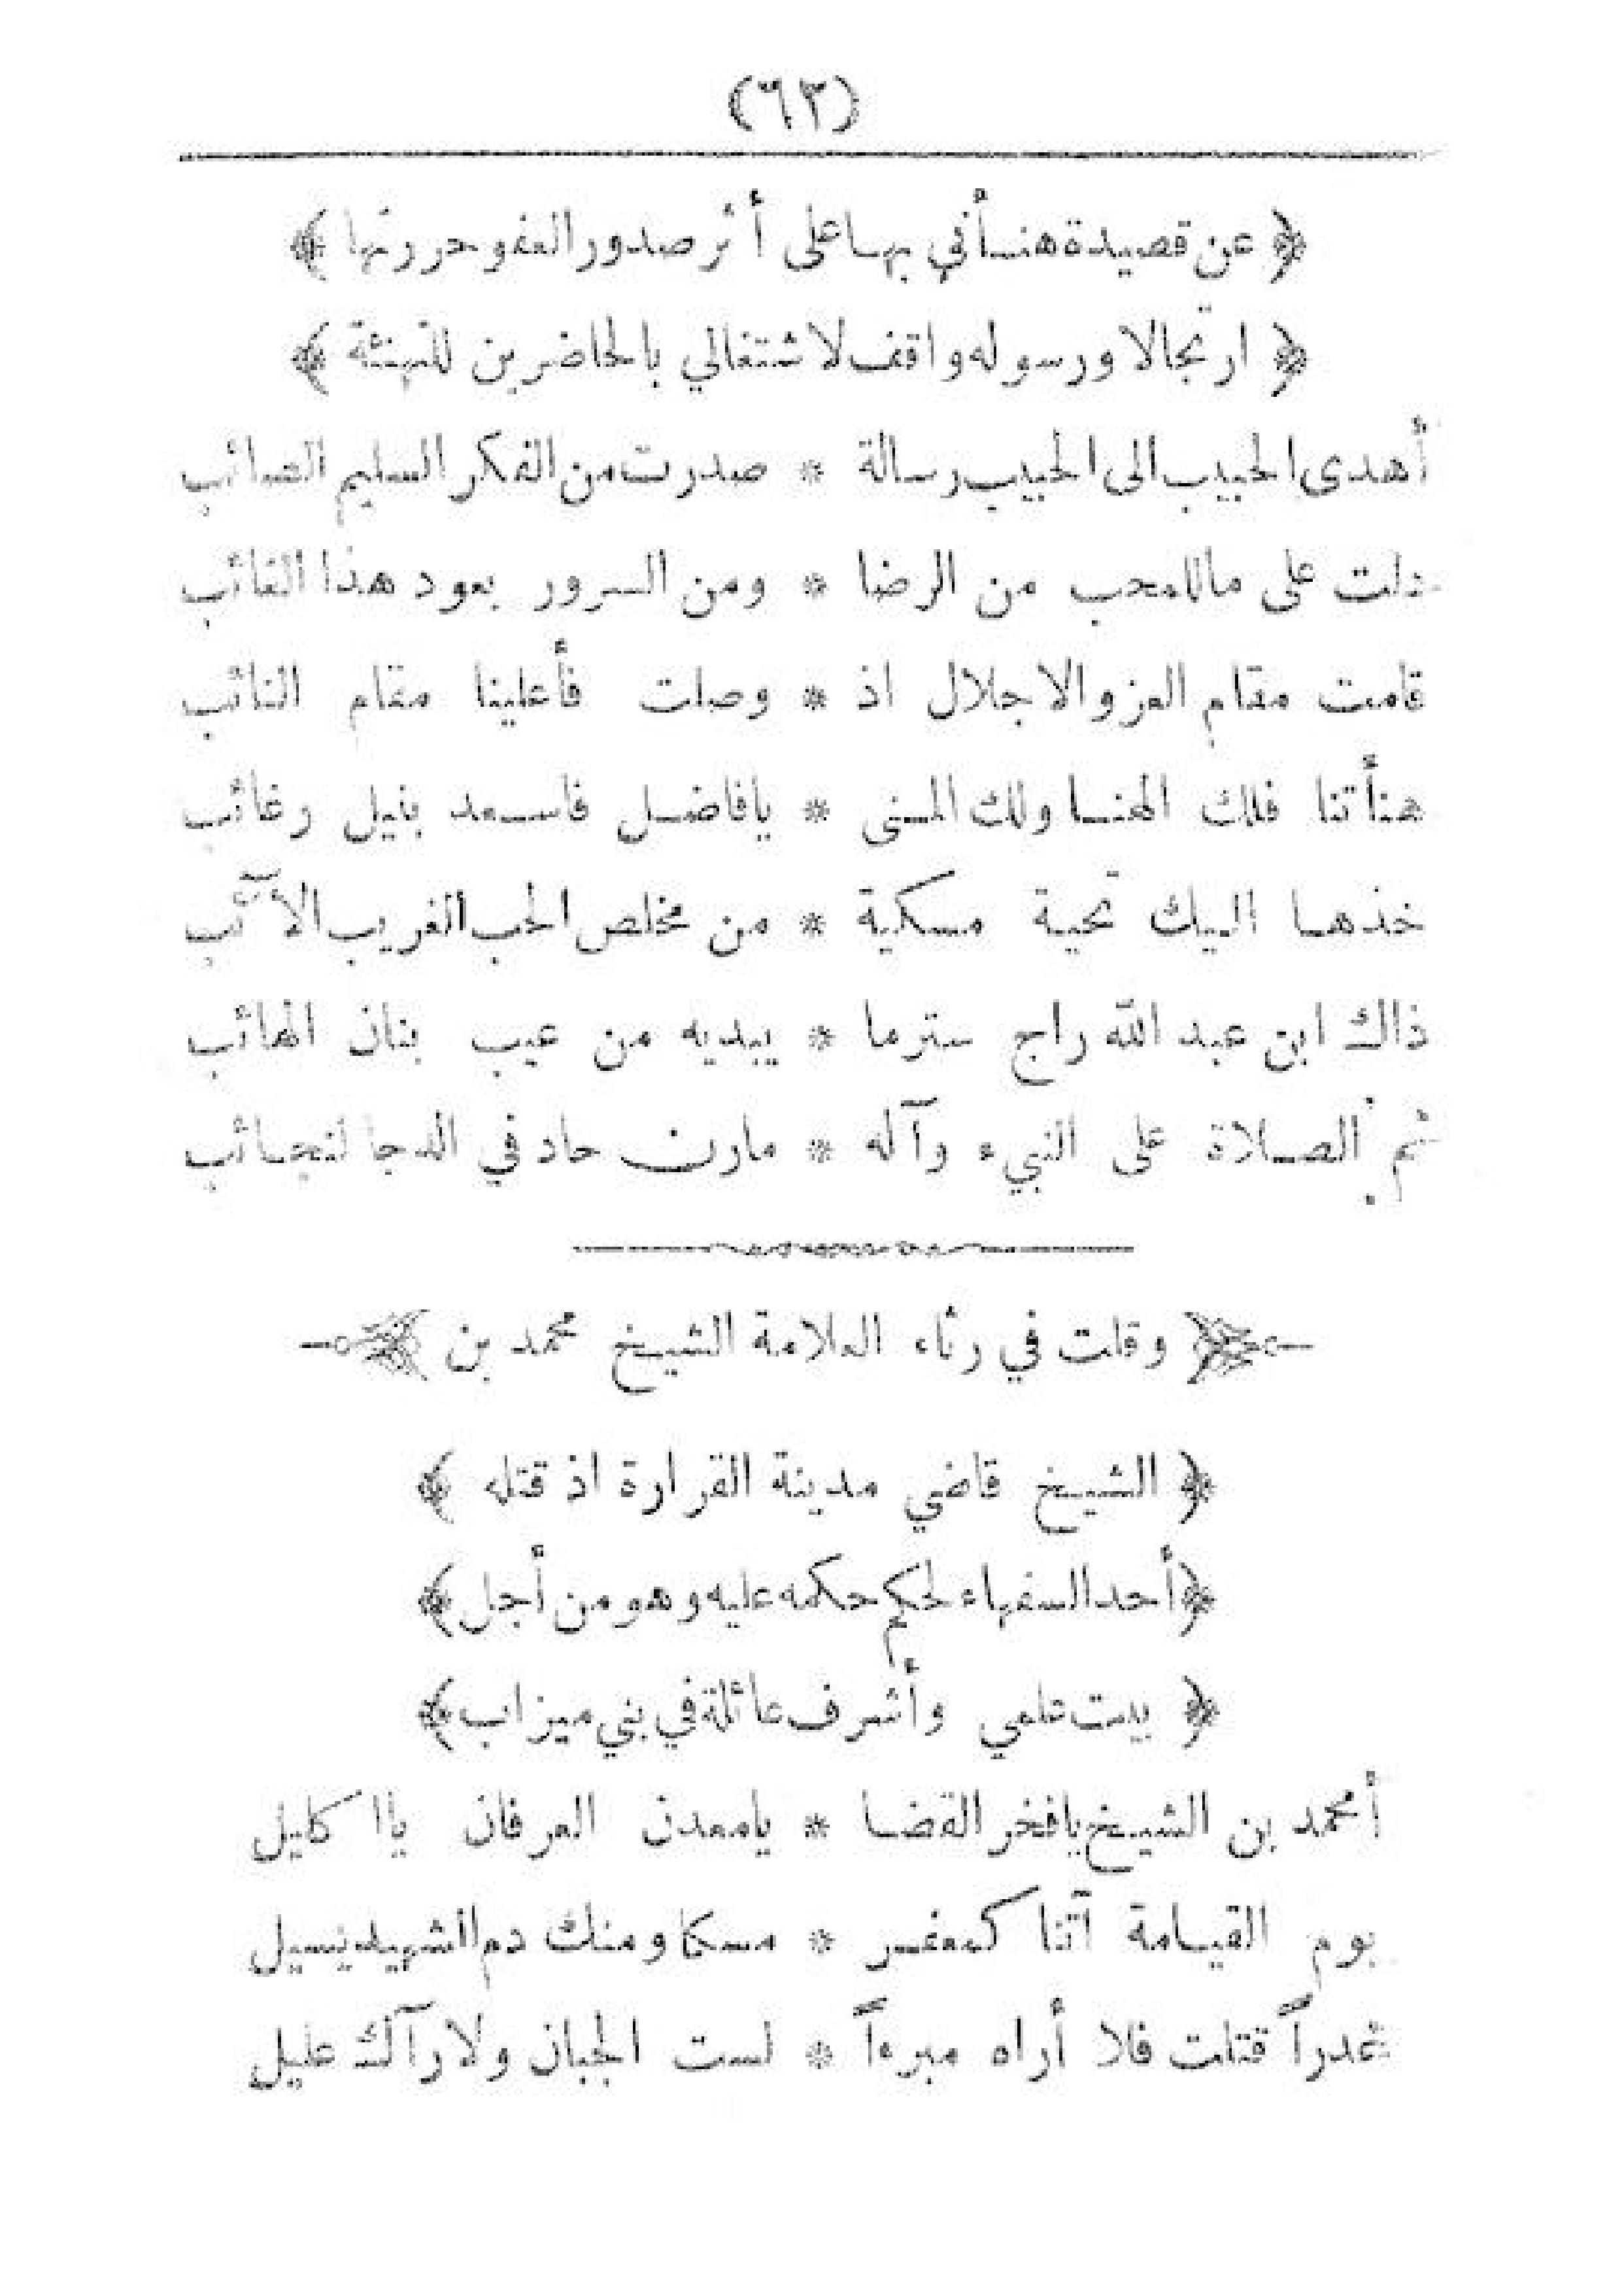 (٦٣)
﴿ عن قصيدة هنأني بها على أثر صدور العفو حررتها ﴾
﴿ ارتجالا ورسوله واقف لاشتغالي بالحاضرين للتهنئة ﴾
أهدى الحبيب الى الحبيب رسالة * صدرت من الفكر السليم الصائب
دلت على ماللمحب من الرضا * ومن السرور بعود هذا الغائب
قامت مقام العز والاجلال اذ * وصلت فأعلينا مقام النائب
هنأتنا فلك الهنا ولك المنى * يافاضل فاسعد بنيل رغائب
خذها اليك تحية مسكية * من مخلص الحب الغريب الآئب
ذاك ابن عبد الله راج سترما * يبديه من عيب بنان الهائب
ثم الصلاة على النبيء وآله * مارن حاد في الدجا لنجائب
﴿ وقلت في رثاء العلامة الشيخ محمد بن ﴾
﴿ الشيخ قاضي مدينة القرارة اذ قتله ﴾
﴿ أحد السفهاء لحكم حكمه عليه وهو من أجل ﴾
﴿ بيت علمي وأشرف عائلة في بني ميزاب ﴾
أمحمد بن الشيخ يافخر القضا * يامعدن العرفان يااكليل
يوم القيامة آتنا كمعفر * مسكا ومنك دم الشهيد يسيل
غدراً قتلت فلا أراه مبرءاً * لست الجبان ولا رآك عليل